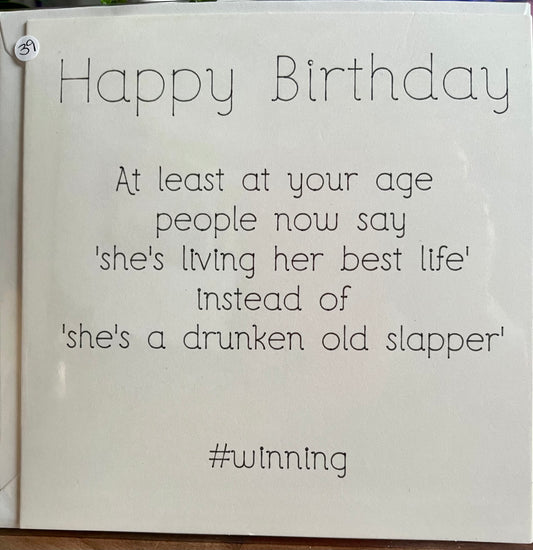 39
Happy Birthday
At least at your age
people now say
'she's living her best life'
instead of
'she's a drunken old slapper'
#winning